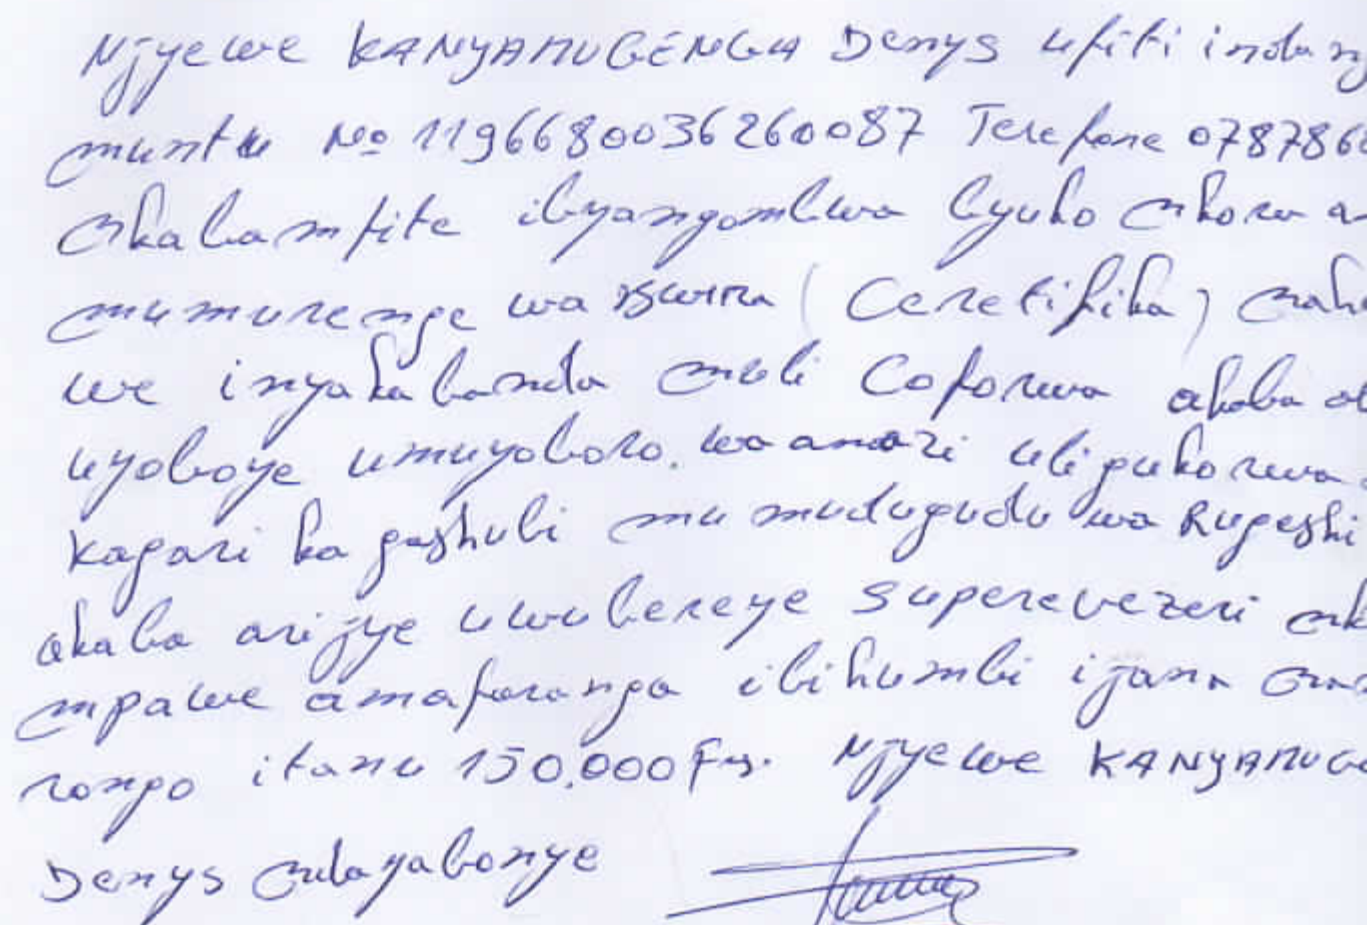 Njyewe KANYAMUGENGA Denys ufiti indang
muntu No 1196680036260087 Terefone 078786
nkabamfite ibyangombwa byuko nkora a
mumurenge wa Bwira (Ceretifika) naho
we inyakabanda muli Coforwa akaba
uyoboye umuyoboro. wa amazi uli gukorwa
Kagari ka gashuli mu mudugudu wa Rugeshi
akaba arijye uwubereye Superevezeri nk
mpawe amafaranga ibihumbi ijana na
rongo itanu 150.000 Frs. Njyewe KANYAMUGE
Denys ndayabonye